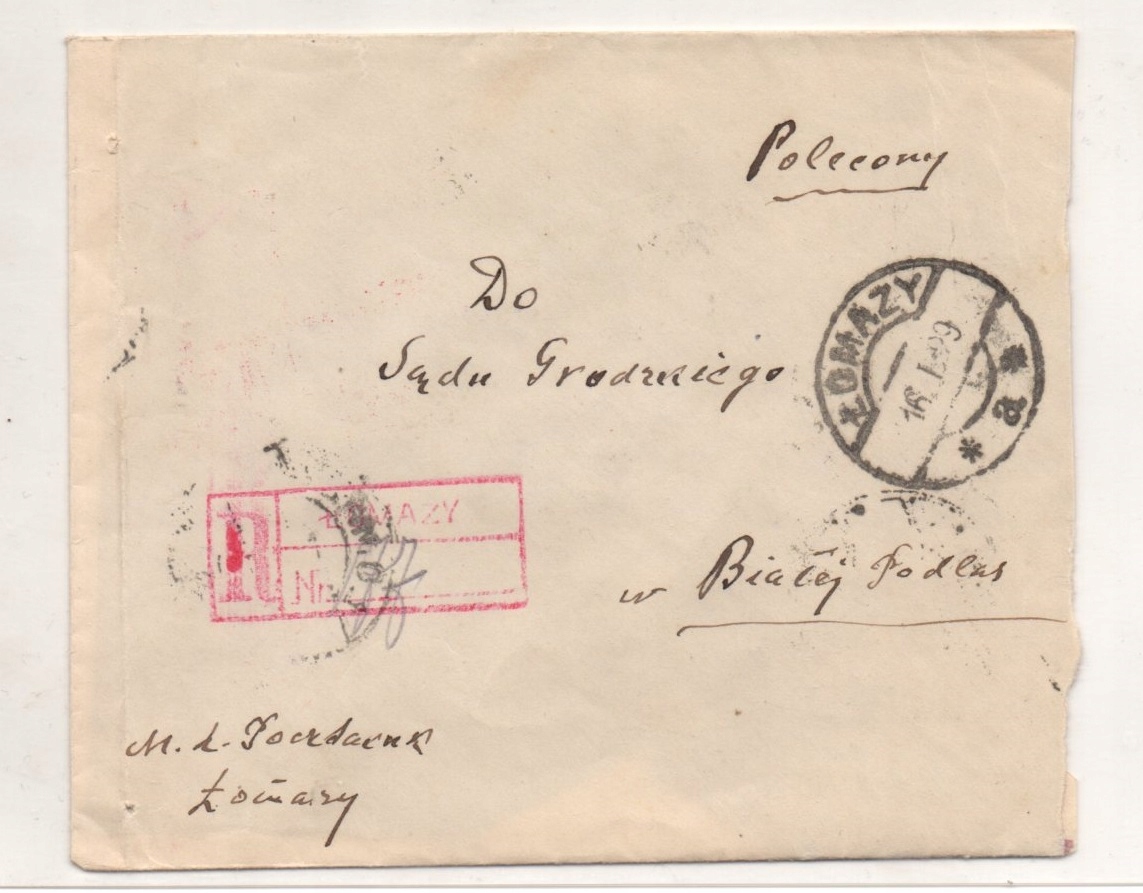 Polecony
Do
Sądu Grodzkiego
ŁOMAZY
16. I. 29
a
R
ŁOMAZY
Nr.
w Białej Podlas
M. L.
Łomazy